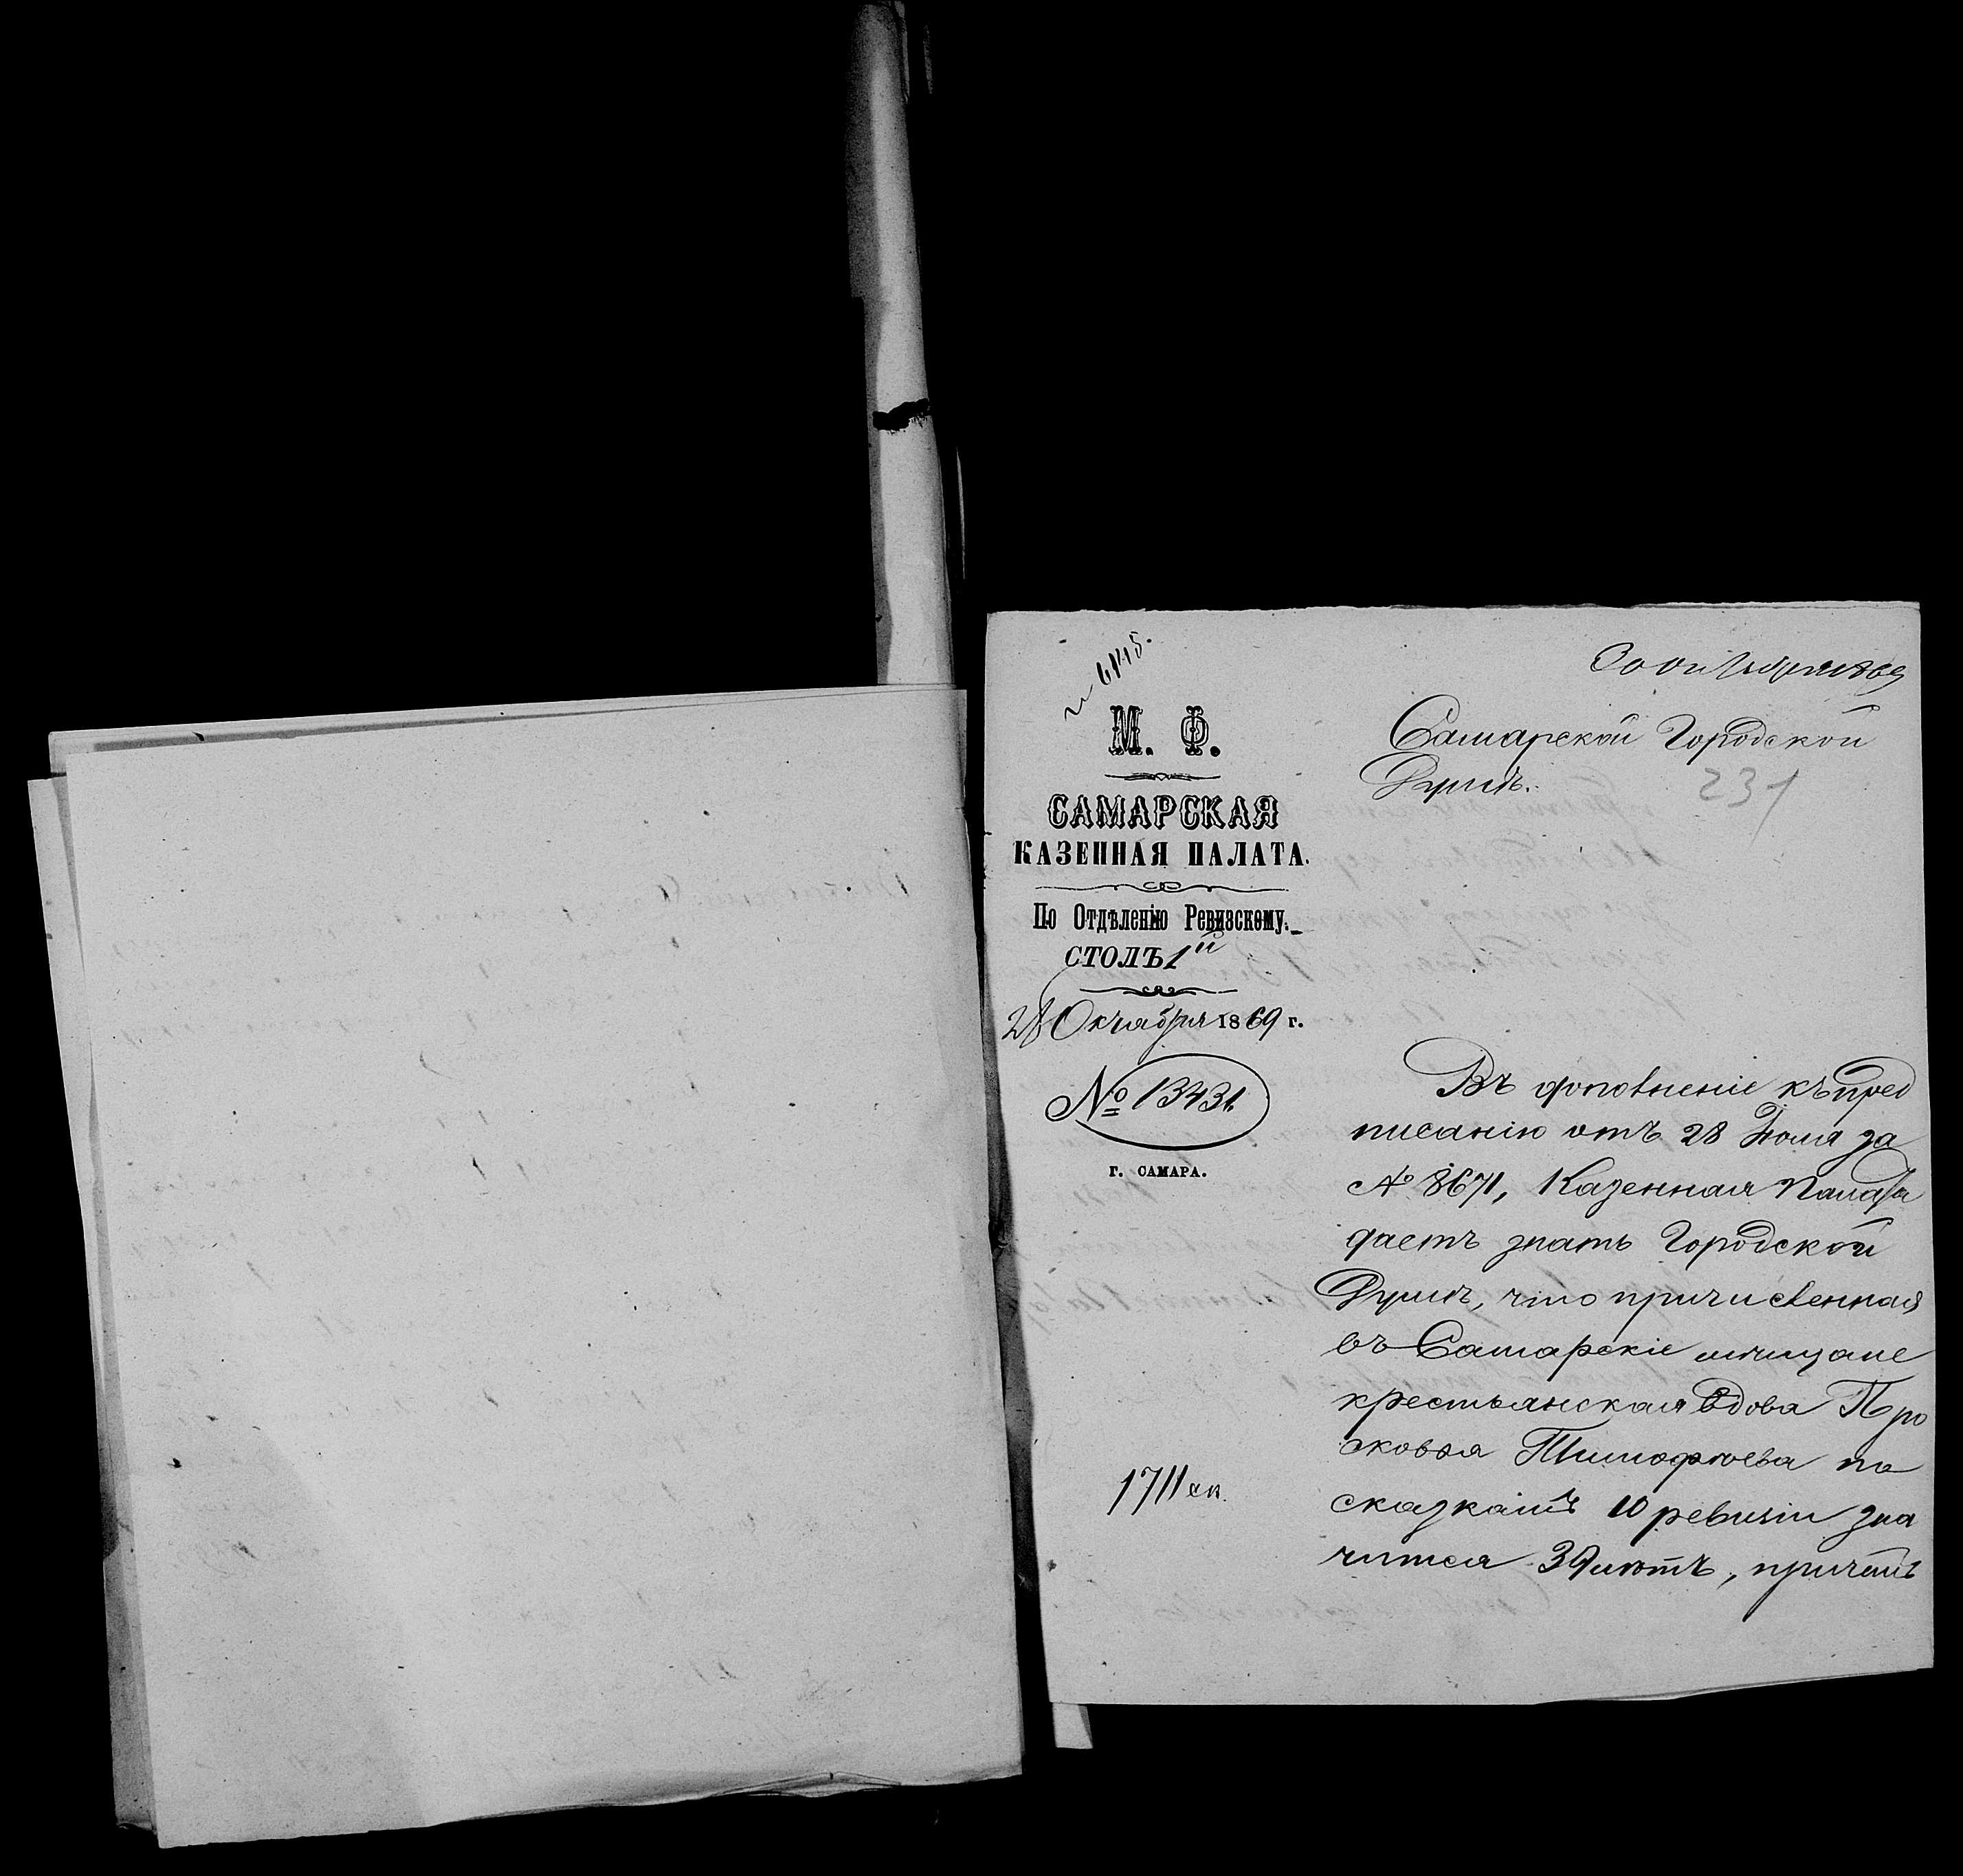 М. Ф.
САМАРСКАЯ
КАЗЕННАЯ ПАЛАТА.
По Отдѣленію Ревизскому.
СТОЛЪ 1й
28 Октября 1869 г.
№ 13431
г. САМАРА.
1711
Самарской Городской
Думѣ.
231
Въ дополненіе къ пред
писанію отъ 28 Іюля за
№ 8671, Казенная Палата
даетъ знать Городской
Думѣ, что причисленная
въ Самарскіе мѣщане
крестьянская вдова Пра
сковья Тимофѣева по
сказкамъ 10 ревизіи зна
чится 39 лѣтъ, причемъ